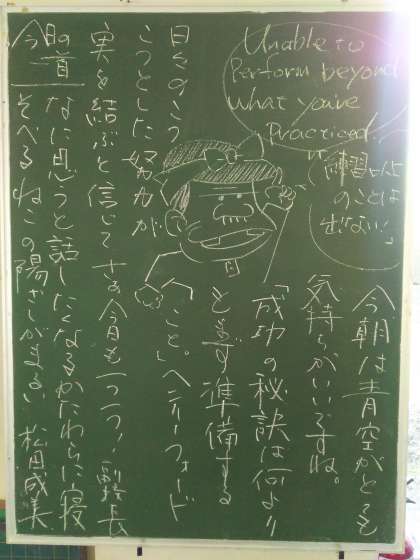 Unable to
Perform beyond
what you've
Practiced.
(練習以上
のことは
出ない!)
今朝は青空がとても
気持ちがいいですね。
「成功の秘訣は何より
もまず準備する
こと。」ヘンリーフォード
日々のこつ
こつとした努力が
実を結ぶと信じてさあ今日も一つ一つ! 副校長
今日の道
なに思うと話したくなるかたわらに寝
そべるねこの陽ざしがまるい 松田成美